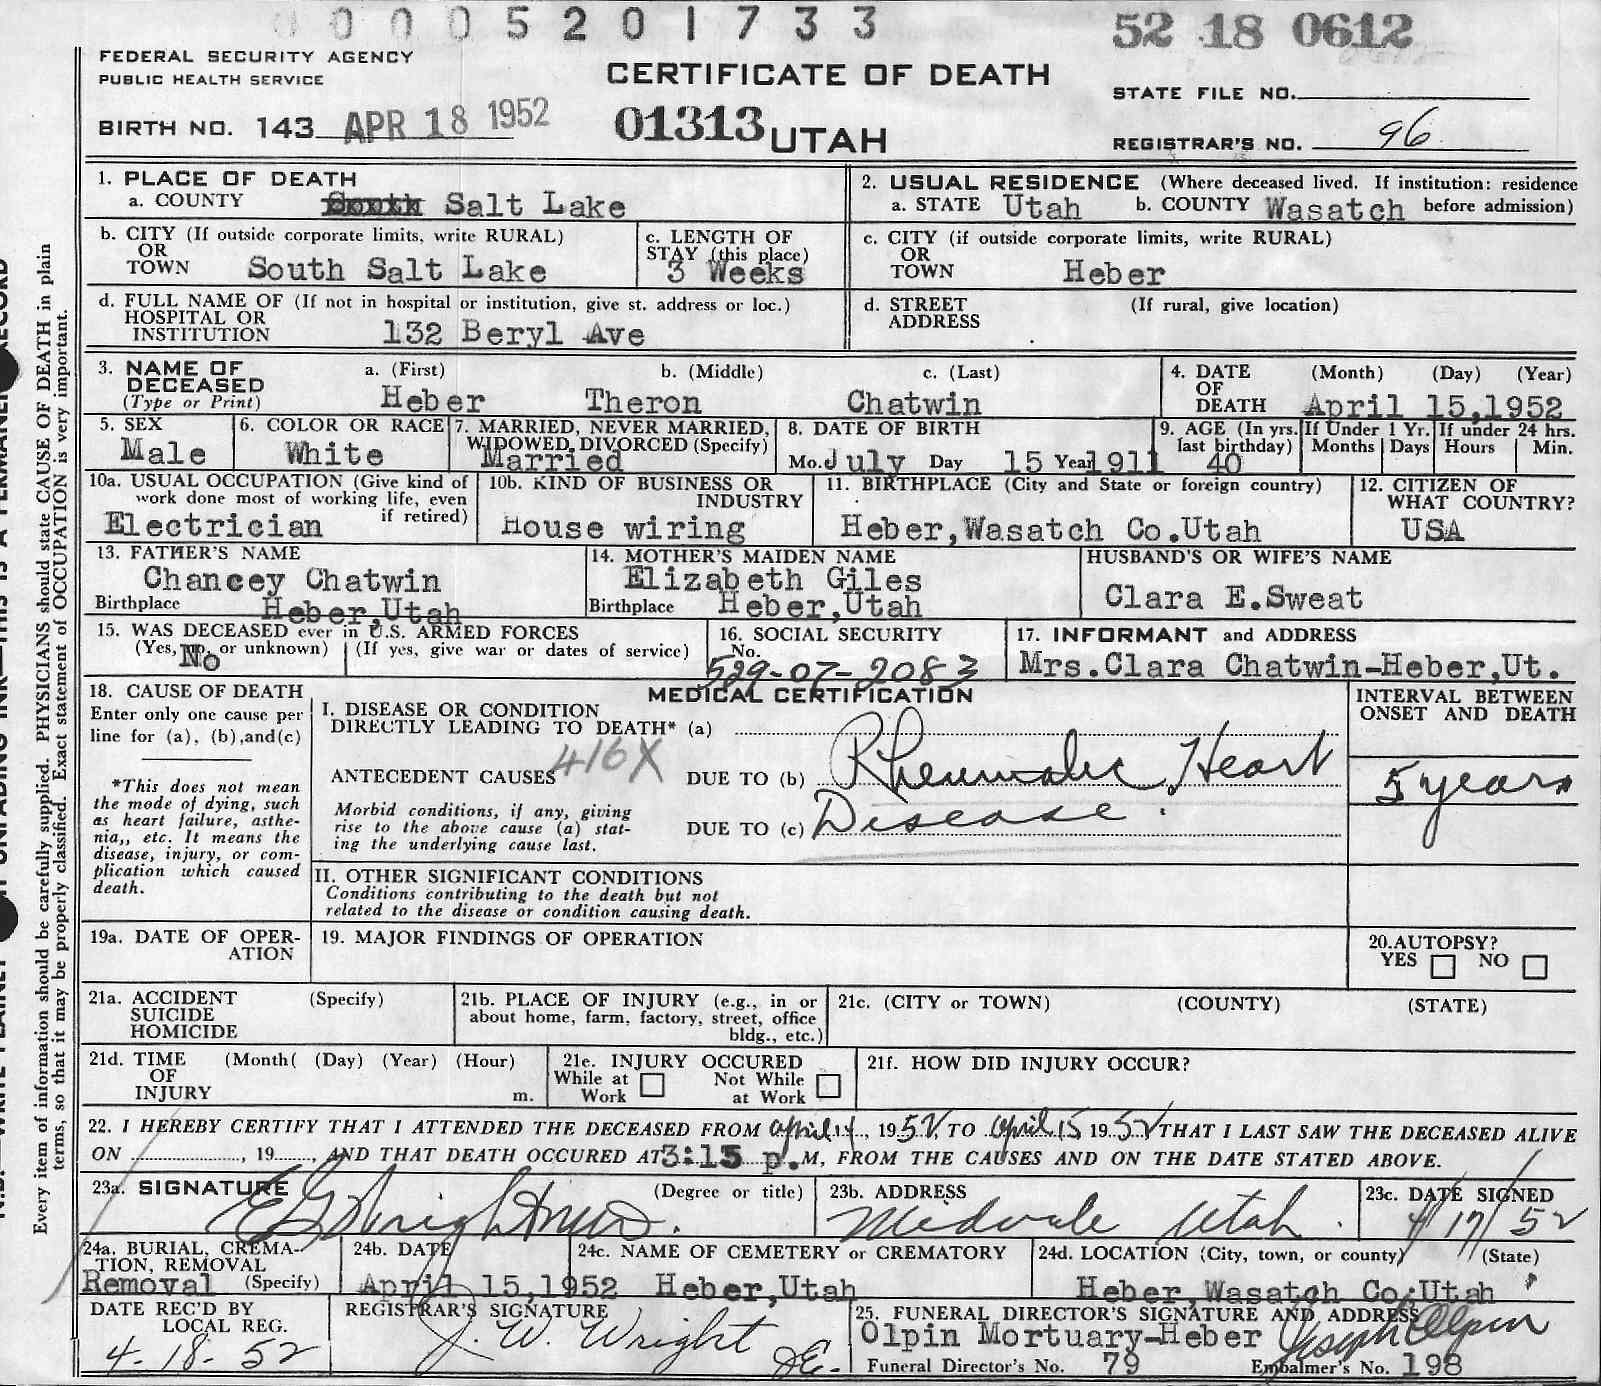 0 0 0 0 5 2 0 1 7 3 3
52 18 0612
FEDERAL SECURITY AGENCY
PUBLIC HEALTH SERVICE
CERTIFICATE OF DEATH
STATE FILE NO.
BIRTH NO. 143 APR 18 1952
01313 UTAH
REGISTRAR'S NO. 96
1. PLACE OF DEATH
a. COUNTY Salt Lake
2. USUAL RESIDENCE (Where deceased lived. If institution: residence before admission)
a. STATE Utah b. COUNTY Wasatch
b. CITY (If outside corporate limits, write RURAL)
OR
TOWN South Salt Lake
c. LENGTH OF
STAY (this place)
3 Weeks
c. CITY (if outside corporate limits, write RURAL)
OR
TOWN Heber
d. FULL NAME OF (If not in hospital or institution, give st. address or loc.)
HOSPITAL OR
INSTITUTION 132 Beryl Ave
d. STREET (If rural, give location)
ADDRESS
3. NAME OF a. (First) b. (Middle) c. (Last)
DECEASED
(Type or Print) Heber Theron Chatwin
4. DATE (Month) (Day) (Year)
OF
DEATH April 15,1952
5. SEX
Male
6. COLOR OR RACE
White
7. MARRIED, NEVER MARRIED,
WIDOWED, DIVORCED (Specify)
Married
8. DATE OF BIRTH
Mo. July Day 15 Year 1911
9. AGE (In yrs.
last birthday)
40
If Under 1 Yr.
Months Days
If under 24 hrs.
Hours Min.
10a. USUAL OCCUPATION (Give kind of
work done most of working life, even
if retired)
Electrician
10b. KIND OF BUSINESS OR
INDUSTRY
House wiring
11. BIRTHPLACE (City and State or foreign country)
Heber,Wasatch Co.Utah
12. CITIZEN OF
WHAT COUNTRY?
USA
13. FATHER'S NAME
Chancey Chatwin
Birthplace Heber,Utah
14. MOTHER'S MAIDEN NAME
Elizabeth Giles
Birthplace Heber,Utah
HUSBAND'S OR WIFE'S NAME
Clara E.Sweat
15. WAS DECEASED ever in U.S. ARMED FORCES
(Yes, no, or unknown) (If yes, give war or dates of service)
No
16. SOCIAL SECURITY
No.
529-07-2083
17. INFORMANT and ADDRESS
Mrs.Clara Chatwin-Heber,Ut.
18. CAUSE OF DEATH
Enter only one cause per
line for (a), (b),and(c)
*This does not mean
the mode of dying, such
as heart failure, asthe-
nia,, etc. It means the
disease, injury, or com-
plication which caused
death.
MEDICAL CERTIFICATION
I. DISEASE OR CONDITION
DIRECTLY LEADING TO DEATH* (a)
416X
ANTECEDENT CAUSES DUE TO (b) Rheumatic Heart
Morbid conditions, if any, giving
rise to the above cause (a) stat-
ing the underlying cause last.
DUE TO (c) Disease.
INTERVAL BETWEEN
ONSET AND DEATH
5 years
II. OTHER SIGNIFICANT CONDITIONS
Conditions contributing to the death but not
related to the disease or condition causing death.
19a. DATE OF OPER-
ATION
19. MAJOR FINDINGS OF OPERATION
20.AUTOPSY?
YES NO
21a. ACCIDENT (Specify)
SUICIDE
HOMICIDE
21b. PLACE OF INJURY (e.g., in or
about home, farm, factory, street, office
bldg., etc.)
21c. (CITY or TOWN) (COUNTY) (STATE)
21d. TIME (Month( (Day) (Year) (Hour)
OF
INJURY m.
21e. INJURY OCCURED
While at Work Not While at Work
21f. HOW DID INJURY OCCUR?
22. I HEREBY CERTIFY THAT I ATTENDED THE DECEASED FROM April 14, 1952, TO April 15 1952 THAT I LAST SAW THE DECEASED ALIVE
ON , 19 , AND THAT DEATH OCCURED AT 3:15 p.M, FROM THE CAUSES AND ON THE DATE STATED ABOVE.
23a. SIGNATURE (Degree or title)
23b. ADDRESS
Midvale Utah.
23c. DATE SIGNED
4/17/52
24a. BURIAL, CREMA-
TION, REMOVAL
Removal (Specify)
24b. DATE
April 15,1952
24c. NAME OF CEMETERY or CREMATORY
Heber,Utah
24d. LOCATION (City, town, or county) (State)
Heber,Wasatch Co.Utah
DATE REC'D BY
LOCAL REG.
4-18-52
REGISTRAR'S SIGNATURE
J. W. Wright
25. FUNERAL DIRECTOR'S SIGNATURE AND ADDRESS
Olpin Mortuary-Heber Joseph Olpin
Funeral Director's No. 79 Embalmer's No. 198
Every item of information should be carefully supplied. PHYSICIANS should state CAUSE OF DEATH in plain
terms, so that it may be properly classified. Exact statement of OCCUPATION is very important.